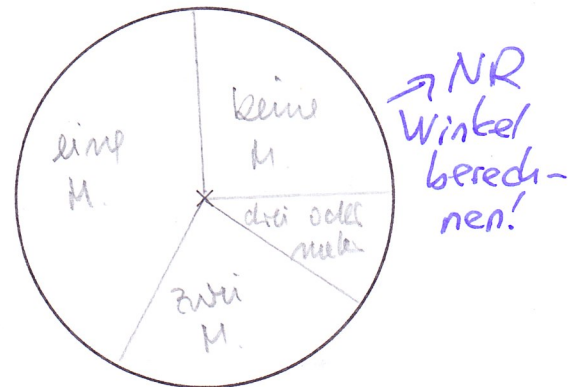 keine
M.
eine
M.
drei oder
mehr
zwei
M.
→ NR
Winkel
berech-
nen!